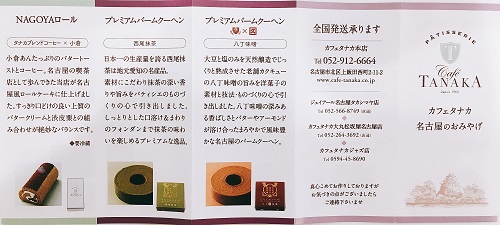 NAGOYAロール
タナカブレンドコーヒー × 小倉
小倉あんたっぷりのバタートー
ストとコーヒー。名古屋の喫茶
店として歩んできた当店が名古
屋屋ロールケーキに仕上げまし
た。すっきり口どけの良い上質の
バタークリームと渋皮栗との組
み合わせが絶妙なバランスです。
●要冷蔵
プレミアムバームクーヘン
西尾抹茶
日本一の生産量を誇る西尾抹
茶は地元愛知の名産品。
素材にこだわり抹茶の深い香
りや旨みをパティシエのものづ
くりの心で引き出しました。
しっとりとした口溶けとまわり
のフォンダンまで抹茶の味わ
いを楽しめるプレミアムな逸品。
プレミアムバームクーヘン
八丁味噌
大豆と塩のみを天然醸造でじっ
くりと熟成させた老舗カクキュー
の八丁味噌の旨みを洋菓子の
素材と技法・ものづくりの心で引
き出しました。八丁味噌の深みあ
る香ばしさとバターやアーモンド
が溶け合ったまろやかで風味豊か
な名古屋のバームクーヘン。
全国発送承ります
カフェタナカ本店
Tel 052-912-6664
名古屋市北区上飯田西町2-11-2
www.cafe-tanaka.co.jp
ジェイアール名古屋タカシマヤ店
Tel 052-566-8749
カフェタナカ大丸松坂屋名古屋店
Tel 052-264-3692
カフェタナカジャズ店
Tel 0594-45-8690
真心こめてお作りしておりますが
お気づきの点がございましたら
ご連絡下さいませ
PÂTISSERIE
Café
TANAKA
Since 1963
カフェタナカ
名古屋のおみやげ